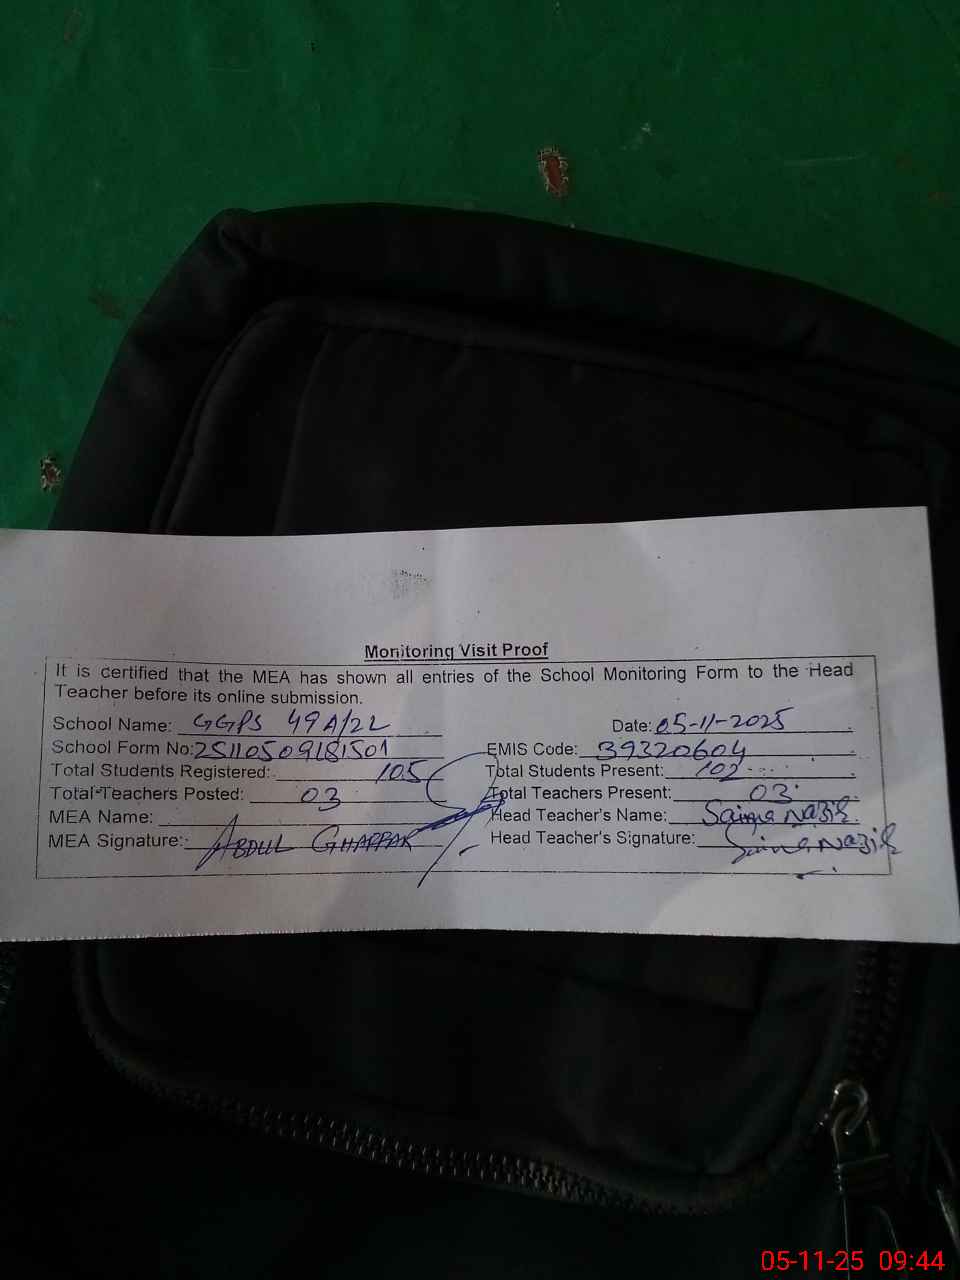 Monitoring Visit Proof
It is certified that the MEA has shown all entries of the School Monitoring Form to the Head
Teacher before its online submission.
School Name: GGPS 49A/2L Date: 05-11-2025
School Form No: 25110509181501 EMIS Code: 39320604
Total Students Registered: 105 Total Students Present: 102
Total Teachers Posted: 03 Total Teachers Present: 03
MEA Name: Head Teacher's Name: Saima Nazir
MEA Signature: ABDUL GHAFFAR Head Teacher's Signature: Saima Nazir
05-11-25 09:44